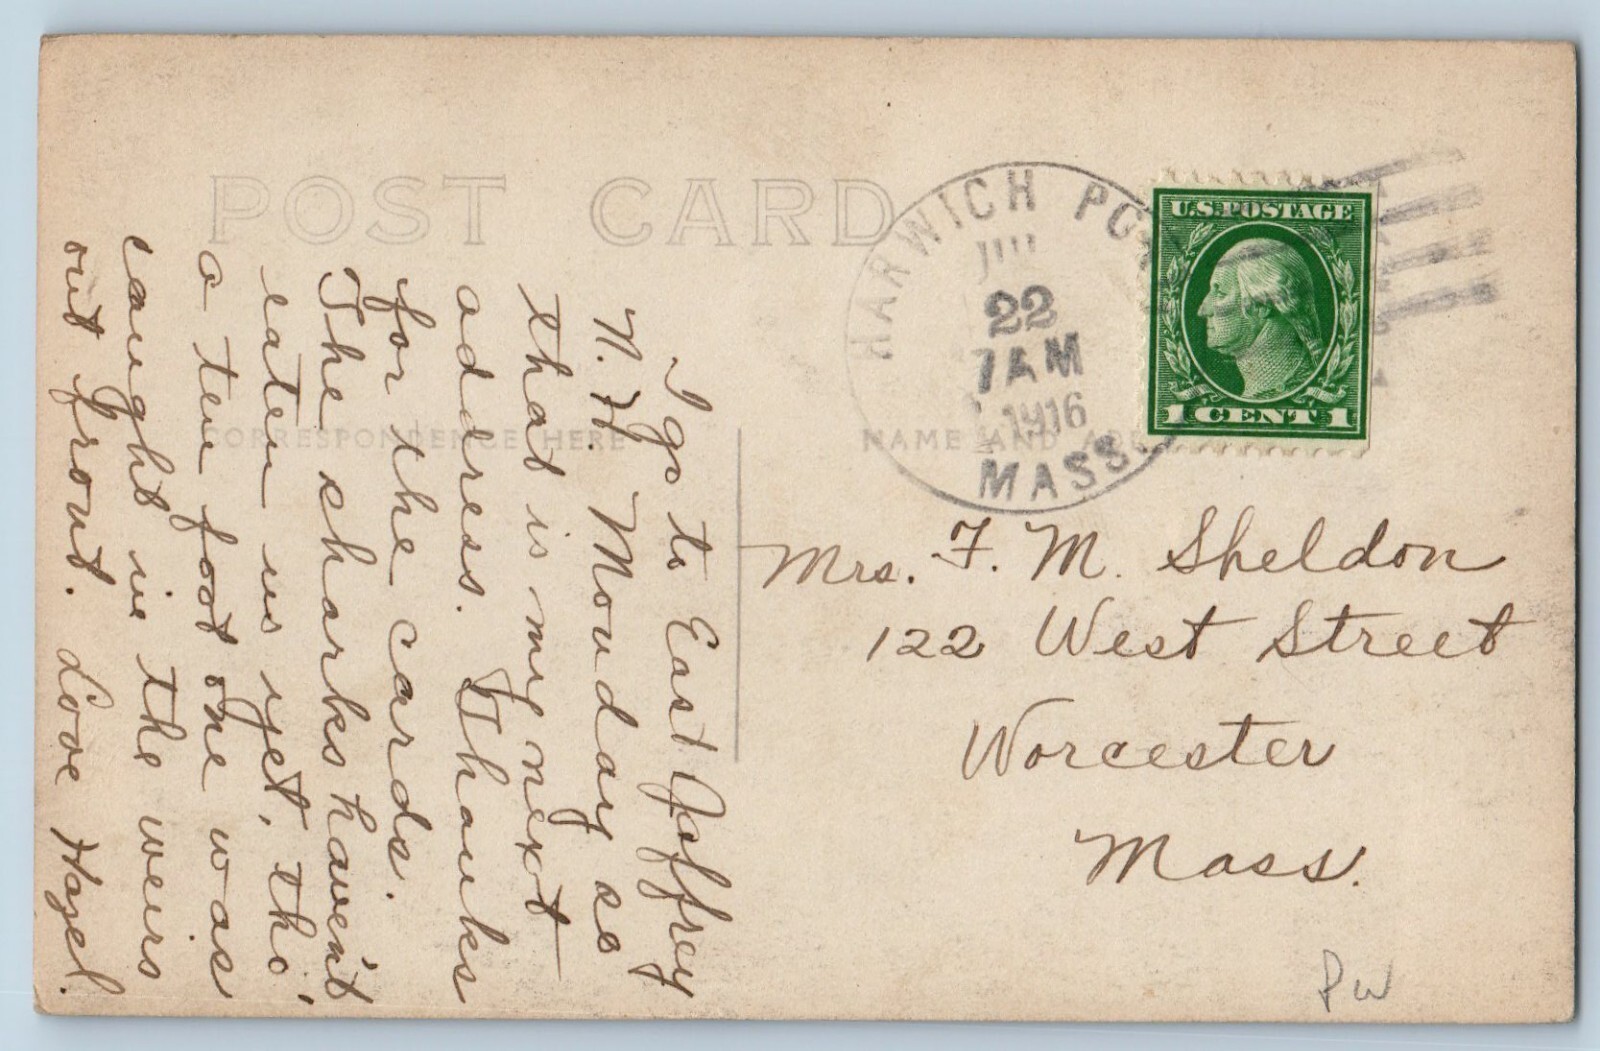 POST CARD
HARWICH PO
22
7 AM
1916
MASS.
U.S. POSTAGE
1 CENT 1
CORRESPONDENCE HERE
NAME AND
I go to East Jaffrey
N. H. Monday so
that is my next
address. Thanks
for the cards.
The sharks haven't
eaten us yet, tho'
a ten foot one was
caught in the weirs
out front. Love Hazel.
Mrs. F. M. Sheldon
122 West Street
Worcester
Mass.
PW